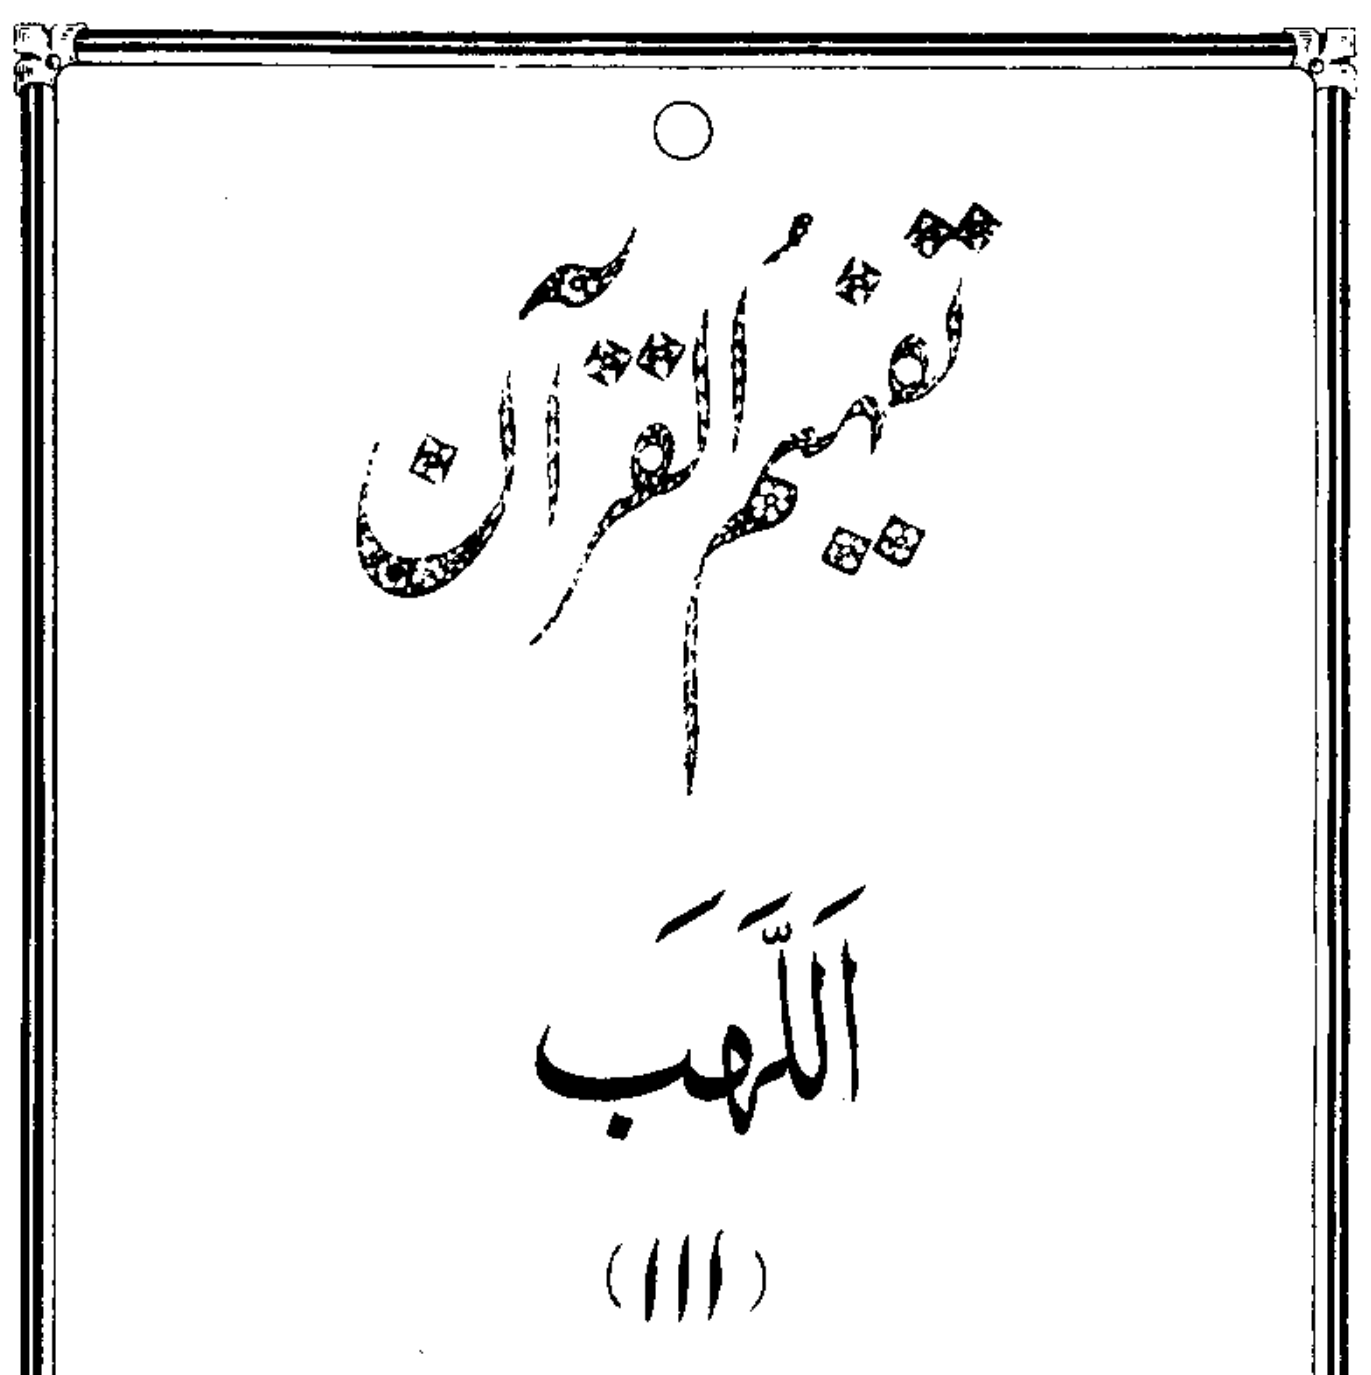 تفہیمُ القرآن
اَللَّهَب
(۱۱۱)